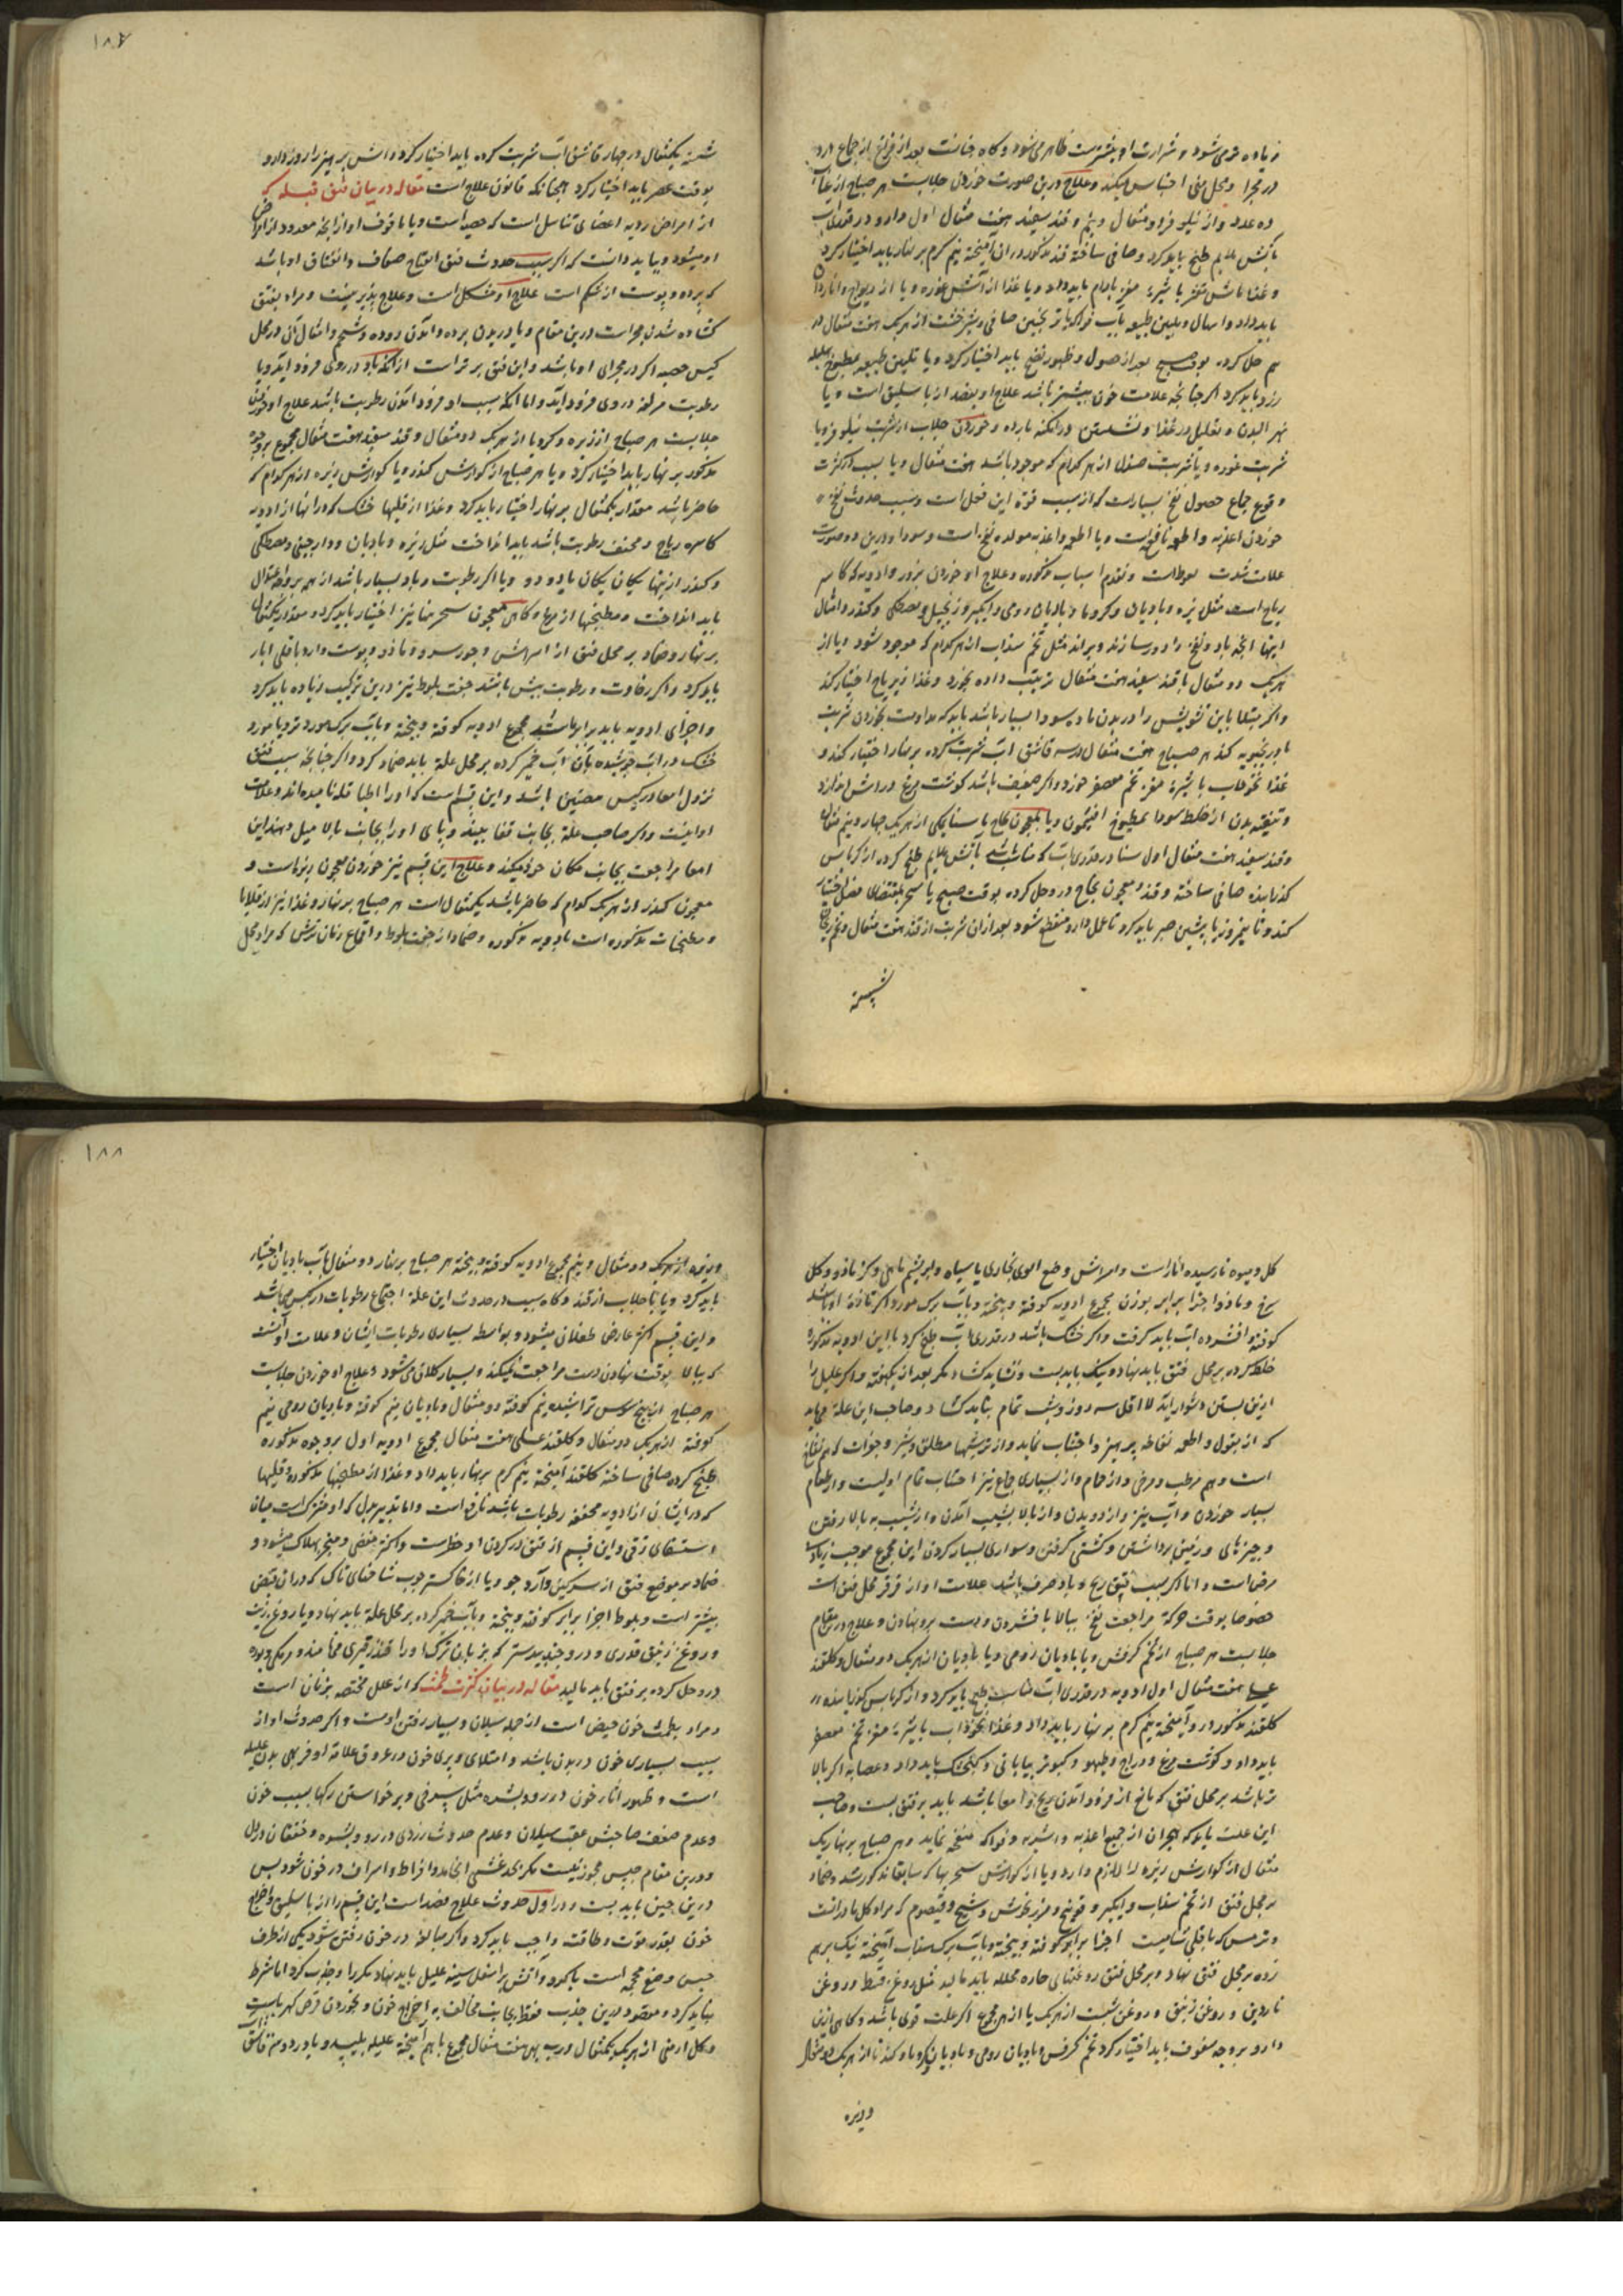 زیاده تری شود و شرارت او بیشتر ظاهر می شود و گاه خباثت بعد از فراغ از جماع درد
در مجرا و محل منی احساس میکند و علاج درین صورت خوردن جلابست هر صباح از عناب
ده عدد و از نیلوفر دو مثقال و نیم و قند سفید هفت مثقال اول دارو در قدری آب
بآتش ملایم طبخ باید کرد و صافی ساخته قند مذکور در آن آمیخته نیم کرم بر نهار باید اختیار کرد
و غذا ماش مقشر با شیرهٔ مغز بادام باید داد و یا غذا از آش غوره و یا از ریواج و انار دان
باید داد و اسهال و تلیین طبیعه بآب فواکه با ترنجبین صافی و شیرخشت از هر یک هفت مثقال در
هم حل کرده بوقت صبح بعد از حصول و ظهور نضج باید اختیار کرد و یا تلیین طبیعه بمطبوخ هلیله
زرد باید کرد اگر چنانچه علامت خون بیشتر باشد علاج او بفصد از باسلیق است و یا
نهر البدن و تقلیل در غذا و نشستن در امکنه بارده و خوردن جلاب از شربت نیلوفر و یا
شربت غوره و یا شربت صندل از هر کدام که موجود باشد هفت مثقال و یا بسبب کثرت
و قوع جماع حصول نفخ بسیار است که از سبب قوة این فعل است و سبب حدوث نفخ
خوردن اغذیه و اطعمه نافخه است و یا اطعمه و اغذیه مولده نفخ است و سودا و درین دو صورت
علامت شدت نعوظ است و تقدم اسباب مذکوره و علاج او خوردن بزور و ادویه که کاسر
ریاح است مثل زیره و بادیان و کرویا و بادیان رومی و ایکیر و زنجبیل و مصطکی و کندر و امثال
اینها آنچه باد و نفخ را دور سازند و براند مثل تخم سداب از هر کدام که موجود شود و یا از
هر یک دو مثقال با قند سفید هفت مثقال ترتیب داده بخورد و غذا زیرباج اختیار کند
و اگر مبتلا باین تشویش را در بدن ماده سودا بسیار باشد باید که مداومت بخوردن شربت
بادرنجبویه کند هر صباح هفت مثقال در سه قاشق آب شربت کرده بر نهار اختیار کند و
غذا نخوداب با شیرهٔ مغز تخم معصفر خورد و اگر ضعیف باشد گوشت مرغ در آش اندازد
و تنقیه بدن از خلط سودا بمطبوخ افتیمون و یا بمعجون نجاح یا سنا مکی از هر یک چهار و نیم مثقال
و قند سفید هفت مثقال اول سنا در قدری آب که مناسب باشد بآتش ملایم طبخ کرده از کرباس
گذرانیده صافی ساخته و قند و معجون نجاح در و حل کرده بوقت صبح یا سحر بمقتضای فصل اختیار
کند و تا نیمروز یا پیشین صبر باید کرد تا عمل دارو منقطع شود بعد از ان شربت از قند هفت مثقال و تخم ریحان
شسته
۱۸۷
شسته یکمثقال در چهار قاشق آب شربت کرده باید اختیار کرد و آش پرهیز را روز دارو
بوقت عصر باید اختیار کرد همچنانکه قانون علاج است مقاله در بیان فتق قیله که
از امراض ردیه اعضای تناسل است که خصیه است و یا مافوق او از انجه معدود از امراض
او میشود و بباید دانست که اگر سبب حدوث فتق انفتاح صفاق و انشقاق او باشد
که پرده و پوست از شکم است علاج او مشکل است و علاج پذیر نیست و مراد بفتق
گشاده شدن مجراست درین مقام و یا دریدن پرده و آمدن روده و شحم و امثال آن در محل
کیس خصیه اگر در مجرای او باشد و این فتق برتر است از آنکه باد در وی فرود آید و یا
رطوبت مزلقه در وی فرود آید و اما آنکه بسبب او فرود آمدن رطوبت باشد علاج او خوردن
جلابست هر صباح از زیره و کرویا از هر یک دو مثقال و قند سفید هفت مثقال مجموع بر وجه
مذکور بر نهار باید اختیار کرد و یا هر صباح از کوارش کندر و یا کوارش زیره از هر کدام که
حاضر باشد مقدار یکمثقال بر نهار اختیار باید کرد و غذا از قلیها خشک که در انها از ادویه
کاسره ریاح و مجفف رطوبت باشد باید انداخت مثل زیره و بادیان و دارچینی و مصطکی
و کندر از اینها یکان یکان یا دو دو و یا اگر رطوبت و باد بسیار باشد از همه بر وجه اعتدال
باید انداخت و مطبخها از مرغ و گاهی معجون سنجرینا نیز اختیار باید کرد و مقدار یکمثقال
بر نهار و ضماد بر محل فتق از ابهل و جوز سرو و مازو و پوست و آرد باقلی انار
باید کرد و اگر رخاوت و رطوبت بیش باشد جفت بلوط نیز درین ترکیب زیاده باید کرد
و اجزای ادویه باید برابر باشد مجموع ادویه کوفته و بیخته و بآب برک مورد تر و یا مورد
خشک در آب جوشیده بآن آب خمیر کرده بر محل علة باید ضماد کرد و اگر چنانچه سبب فتق
نزول امعا در کیس خصیتین باشد و این قسم است که او را اطبا قیله نامیده اند و علامت
او اینست که اگر صاحب علة بجانب قفا بیفتد و پای او را بجانب بالا میل دهند این
امعا مراجعت بجانب مکان خود میکند و علاج این قسم نیز خوردن معجون زیره است و
معجون کندر از هر یک کدام که حاضر باشد یکمثقال است هر صباح بر نهار و غذا نیز از قلایا
و مطبخات مذکوره است بادویه مذکوره و ضماد از جفت بلوط و اقماع رمان ترش که مراد محل
گل و میوه نارسیده انار است و امراش وضع الموی بخاری یا سیاه و ابریشم ماهی و کزمازو و گل
سرخ و مازو اجزا برابر بوزن مجموع ادویه کوفته و بیخته و بآب برک مورد اگر تازهٔ او باشد
کوفته و افشرده آب باید گرفت و اگر خشک باشد در قدری آب طبخ کرد با این ادویه مذکوره
خلط کرده بر محل فتق باید نهاد و نیک باید بست و نشاید گشاد مگر بعد از یکهفته و اگر علیل را
ازین بستن دشوار آید لا اقل سه روز و شب تمام نباید گشاد و صاحب این علة می باید
که از بقول و اطعمه نفاخه پرهیز و اجتناب نماید و از ترشیها مطلق و شیر و جغرات که هم نفاخ
است و هم مرطب و مرخی و از حمام و از بسیاری جماع نیز اجتناب تمام اولیست و از طعام
بسیار خوردن و آب نیز و از دویدن و از بالا بشیب آمدن و از شیب به بالا رفتن
و چیزهای وزنین برداشتن و کشتی گرفتن و سواری بسیار کردن این مجموع موجب زیادت
مرض است و اما اگر سبب فتق ریح و باد صرف باشد علامت او از قرقر محل فتق است
خصوصا بوقت حرکة مراجعت نفخ ببالا بافشردن و دست بر و نهادن و علاج درین مقام
جلابست هر صباح از تخم کرفس و یا بادیان رومی و یا بادیان از هر یک دو مثقال و گلقند
عسلی هفت مثقال اول ادویه در قدری آب مناسب طبخ باید کرد و از کرباس گذرانیده و
گلقند مذکور در و آمیخته نیم کرم بر نهار باید داد و غذا نخوداب با شیرهٔ مغز تخم معصفر
باید داد و گوشت مرغ و دراج و تیهو و کبوتر بیابانی و گنجشک باید داد و عصابه اگر بالا
تر باشد بر محل فتق که مانع از فرود آمدن ریح و امعا باشد باید بر فتق بست و صاحب
این علت باید که هجران از جمیع اغذیه و اشربه و فواکه منفخه نماید و هر صباح بر نهار یک
مثقال از کوارش زیره را لازم دارد و یا از کوارش سنجرینها که سابقا مذکور شد و ضماد
بر محل فتق از تخم سداب و ایکیر و فودنج و مرزنجوش و شیح و قیصوم که مراد گل مادرانست
و ترمس که باقلی شامیست اجزا برابر کوفته و بیخته و بآب برک سداب آمیخته نیک برهم
زده بر محل فتق نهاد و بر محل فتق روغنهای حاره محلله باید مالید مثل روغن قسط و روغن
ناردین و روغن زنبق و روغن شبت از هر یک یا از هر مجموع اگر علت قوی باشد و گاهی ازین
دارو بر وجه سفوف باید اختیار کرد تخم کرفس و بادیان رومی و بادیان و کرویا و کندر از هر یک دو مثقال
و زیره
۱۸۸
و زیره از هر یک دو مثقال و نیم مجموع ادویه کوفته و بیخته هر صباح بر نهار دو مثقال بآب بادیان اختیار
باید کرد و یا با جلاب از قند و گاه سبب در حدوث این علة اجتماع رطوبات در کیس می باشد
و این قسم اکثر عارض طفلان میشود و بواسطه بسیاری رطوبات ایشان و علامت او آنست
که ببالا بوقت نهادن دست مراجعت نمیکند و بسیار کلان می شود و علاج او خوردن جلابست
هر صباح از بیخ سوس تراشیده نیم کوفته دو مثقال و بادیان نیم کوفته و بادیان رومی نیم
کوفته از هر یک دو مثقال و گلقند عسلی هفت مثقال مجموع ادویه اول بر وجه مذکوره
طبخ کرده صافی ساخته گلقند آمیخته نیم کرم بر نهار باید داد و غذا از مطبخها مذکوره و قلیها
که در ایشان از ادویه مجففه رطوبات باشد نافع است و اما تدبیر بزل که او مشترک است میان
استسقای زقی و این قسم از فتق در کردن او خطر است و اکثر مفضی و منجر بهلاک میشود و
ضماد بر موضع فتق از سرکین و آرد جو و یا از خاکستر چوب شاخهای تاک که در ان قبض
بیشتر است و بلوط اجزا برابر کوفته و بیخته و بآب خمیر کرده بر محل علة باید نهاد و یا روغن زیت
و روغن زنبق قدری و در و جندبیدستر که بزبان ترک او را قندز قیری می خوانند و مر مکی سوده
در و حل کرده بر فتق باید مالید مقاله در بیان کثرت طمث که از علل مختصه بزنان است
و مراد بطمث خون حیض است از جمله سیلان و بسیار رفتن اوست و اگر حدوث او از
سبب بسیاری خون در بدن باشد و امتلای و پری خون در عروق علامة او فربهی بدن علیله
است و ظهور آثار خون در رو و بشره مثل سرخی و برخواستن رگها بسبب خون
و عدم ضعف صاحبش عقب سیلان و عدم حدوث زردی در رو و بشره و خفقان در دل
و درین مقام حبس مجوز نیست مگر بحد غشی انجامد و افراط و اسراف در خون شود پس
درین حین باید بست و در اول حدوث علاج فصد است این قسم را از باسلیق و اخراج
خون بقدر قوت و طاقت واجب باید کرد و اگر مبالغه در خون رفتن شود یکی از طرف
حبس وضع محجمه است یا کدو و آتش بر اسفل سینه علیل باید نهاد مکررا و جذب کرد اما شرط
نباید کرد و مقصود درین جذب فقط بجانب مخالف به اخراج خون و بخوردن قرص کهرباست
و گل ارمنی از هر یک یکمثقال و رب به هفت مثقال مجموع با هم آمیخته علیله بلیسد و یا در دو سه قاشق